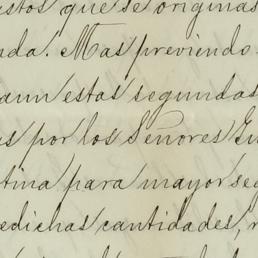 stos que se originas
nda. Mas previendo
aun estas segundas
s por los Señores
tina para mayor se
edichas cantidades,